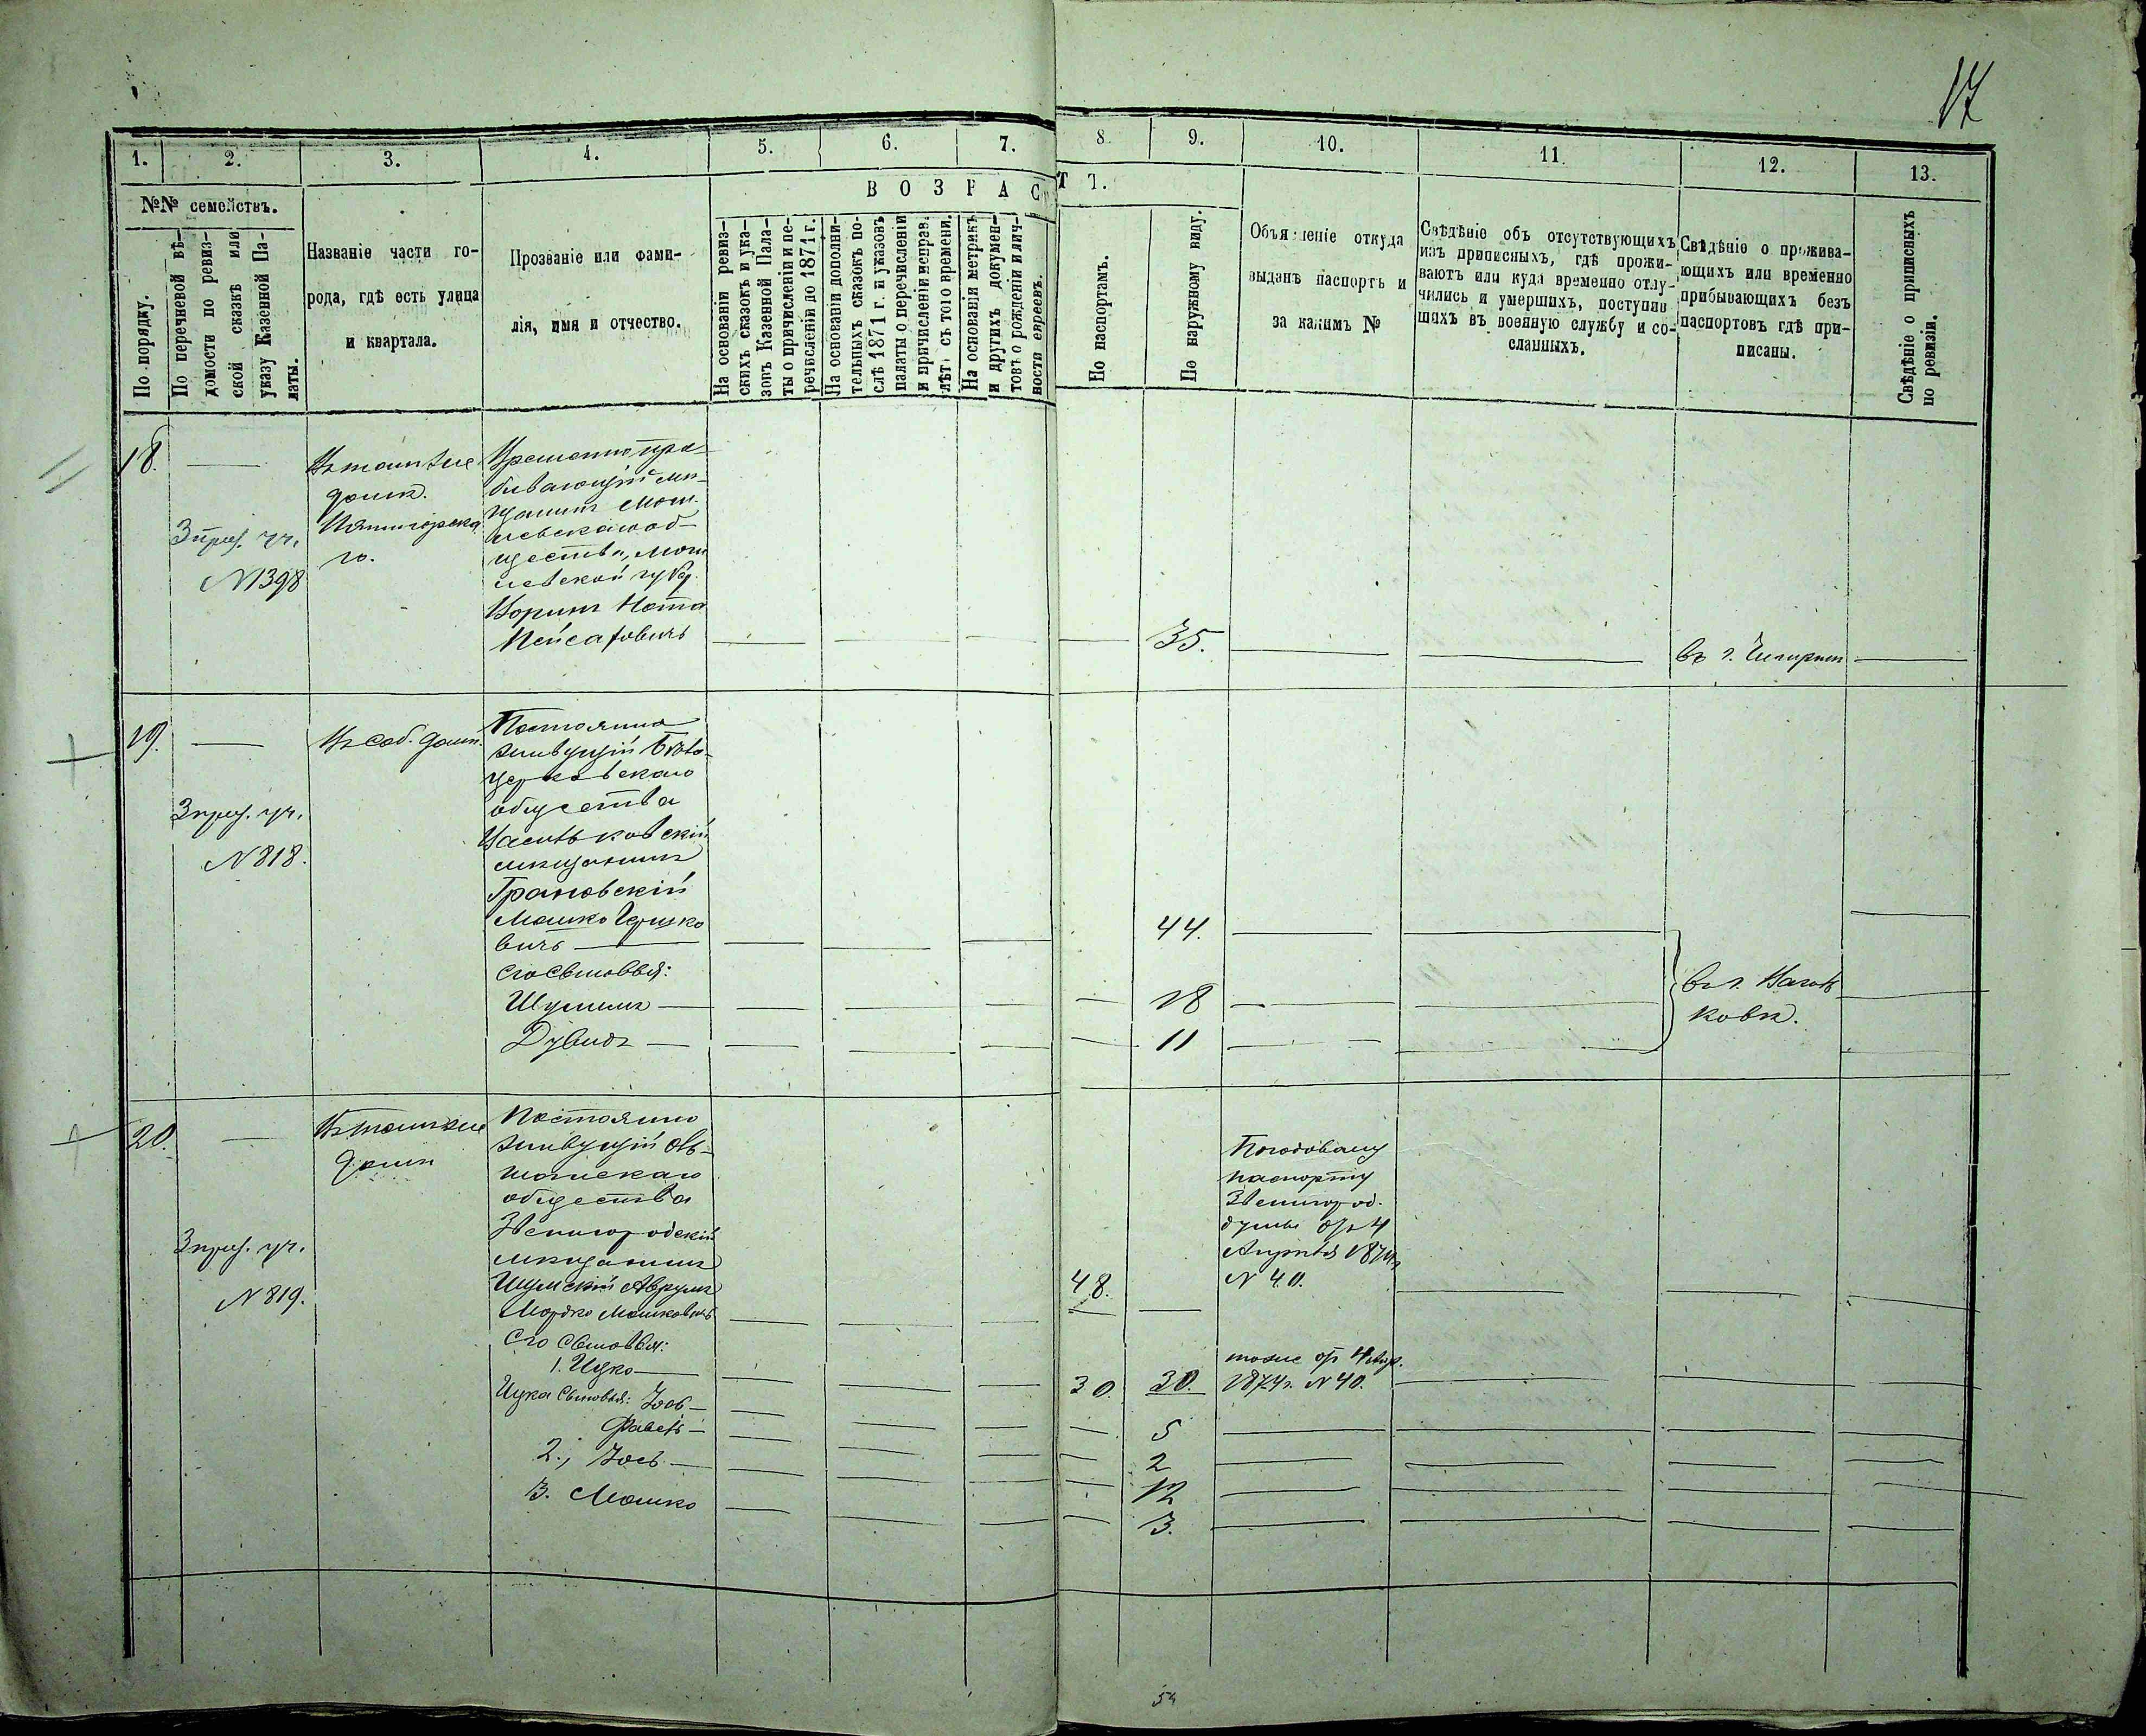 17
1.
2.
3.
4.
5.
6.
7.
8.
9.
10.
11.
12.
13.
№№ семействъ.
По порядку.
По перечневой вѣ-
домости по ревиз-
ской сказкѣ или
указу Казенной Па-
латы.
Названіе части го-
рода, гдѣ есть улица
и квартала.
Прозваніе или фами-
лія, имя и отчество.
ВОЗРАСТЪ.
На основаніи ревиз-
скихъ сказокъ и ука-
зовъ Казенной Пала-
ты о причисленіи и пе-
речисленіи до 1871 г.
На основаніи дополни-
тельныхъ сказокъ по-
слѣ 1871 г. и указовъ
палаты о перечисленіи
и причисленіи исправ.
лѣтъ съ того времени.
На основаніи метрикъ
и другихъ докумен-
товъ о рожденіи и лич-
ности евреевъ.
По паспортамъ.
По наружному виду.
Объясненіе откуда
выданъ паспортъ и
за какимъ №
Свѣдѣніе объ отсутствующихъ
изъ приписныхъ, гдѣ прожи-
ваютъ или куда временно отлу-
чились и умершихъ, поступив-
шихъ въ военную службу и со-
сланныхъ.
Свѣдѣніе о прожива-
ющихъ или временно
прибывающихъ безъ
паспортовъ гдѣ при-
писаны.
Свѣдѣніе о приписныхъ
по ревизіи.
18.
3 приз. уч.
№ 1398
Въ томъ же
домѣ
Временно пре-
бывающій мѣ-
щанинъ Моги-
левскаго об-
щества, Моги
левской губер.
Коринъ Нота
Пейсаховичъ
35.
въ г. Чигиринѣ
19.
3 приз. уч.
№ 818.
Въ соб. домѣ.
Постоянно
живущій Бѣло-
церковскаго
общества
Васильковскій
мѣщанинъ
Грановскій
Мошко Гершко
вичъ
44.
его сыновья:
Шулимъ
18
Дувидъ
11
въ г. Василь
ковѣ.
20.
3 приз. уч.
№ 819.
Въ томъ же
домѣ
Постоянно
живущій Оль-
шанскаго
общества
Звенигородскій
мѣщанинъ
Шумскій Аврумъ
Мордко Мошковичъ
48.
По годовому
паспорту
Звенигород.
думы отъ 4
Апрѣля 1874 г.
№ 40.
Его сыновья:
1. Ицко
30.
30.
тоже отъ 4 Апр.
1874 г. № 40.
Ицка сыновья:
5
2
2., Іось
12
3. Мошко
3.